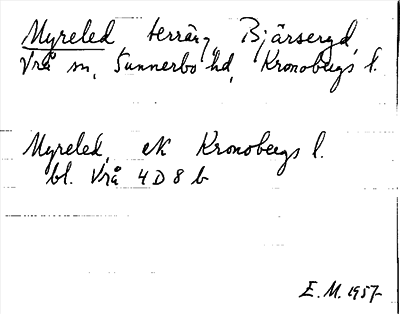 Myreled terräng Bjärseryd
Vrå sn, Sunnerbo hd, Kronobergs l.
Myreled, ek Kronobergs l.
bl. Vrå 4 D 8 b
E. M. 1957